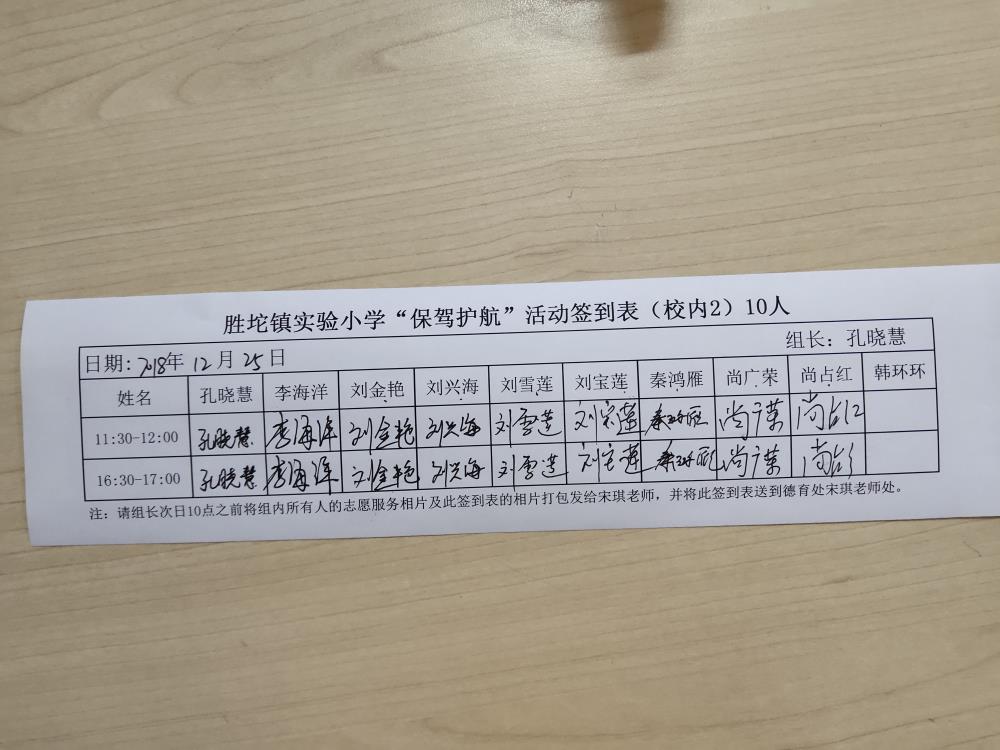 胜坨镇实验小学“保驾护航”活动签到表（校内2）10人
日期: 2018年 12月 25日 组长：孔晓慧
姓名 孔晓慧 李海洋 刘金艳 刘兴海 刘雪莲 刘宝莲 秦鸿雁 尚广荣 尚占红 韩环环
11:30-12:00 孔晓慧 李海洋 刘金艳 刘兴海 刘雪莲 刘宝莲 秦鸿雁 尚广荣 尚占红
16:30-17:00 孔晓慧 李海洋 刘金艳 刘兴海 刘雪莲 刘宝莲 秦鸿雁 尚广荣 尚占红
注：请组长次日10点之前将组内所有人的志愿服务相片及此签到表的相片打包发给宋琪老师，并将此签到表送到德育处宋琪老师处。